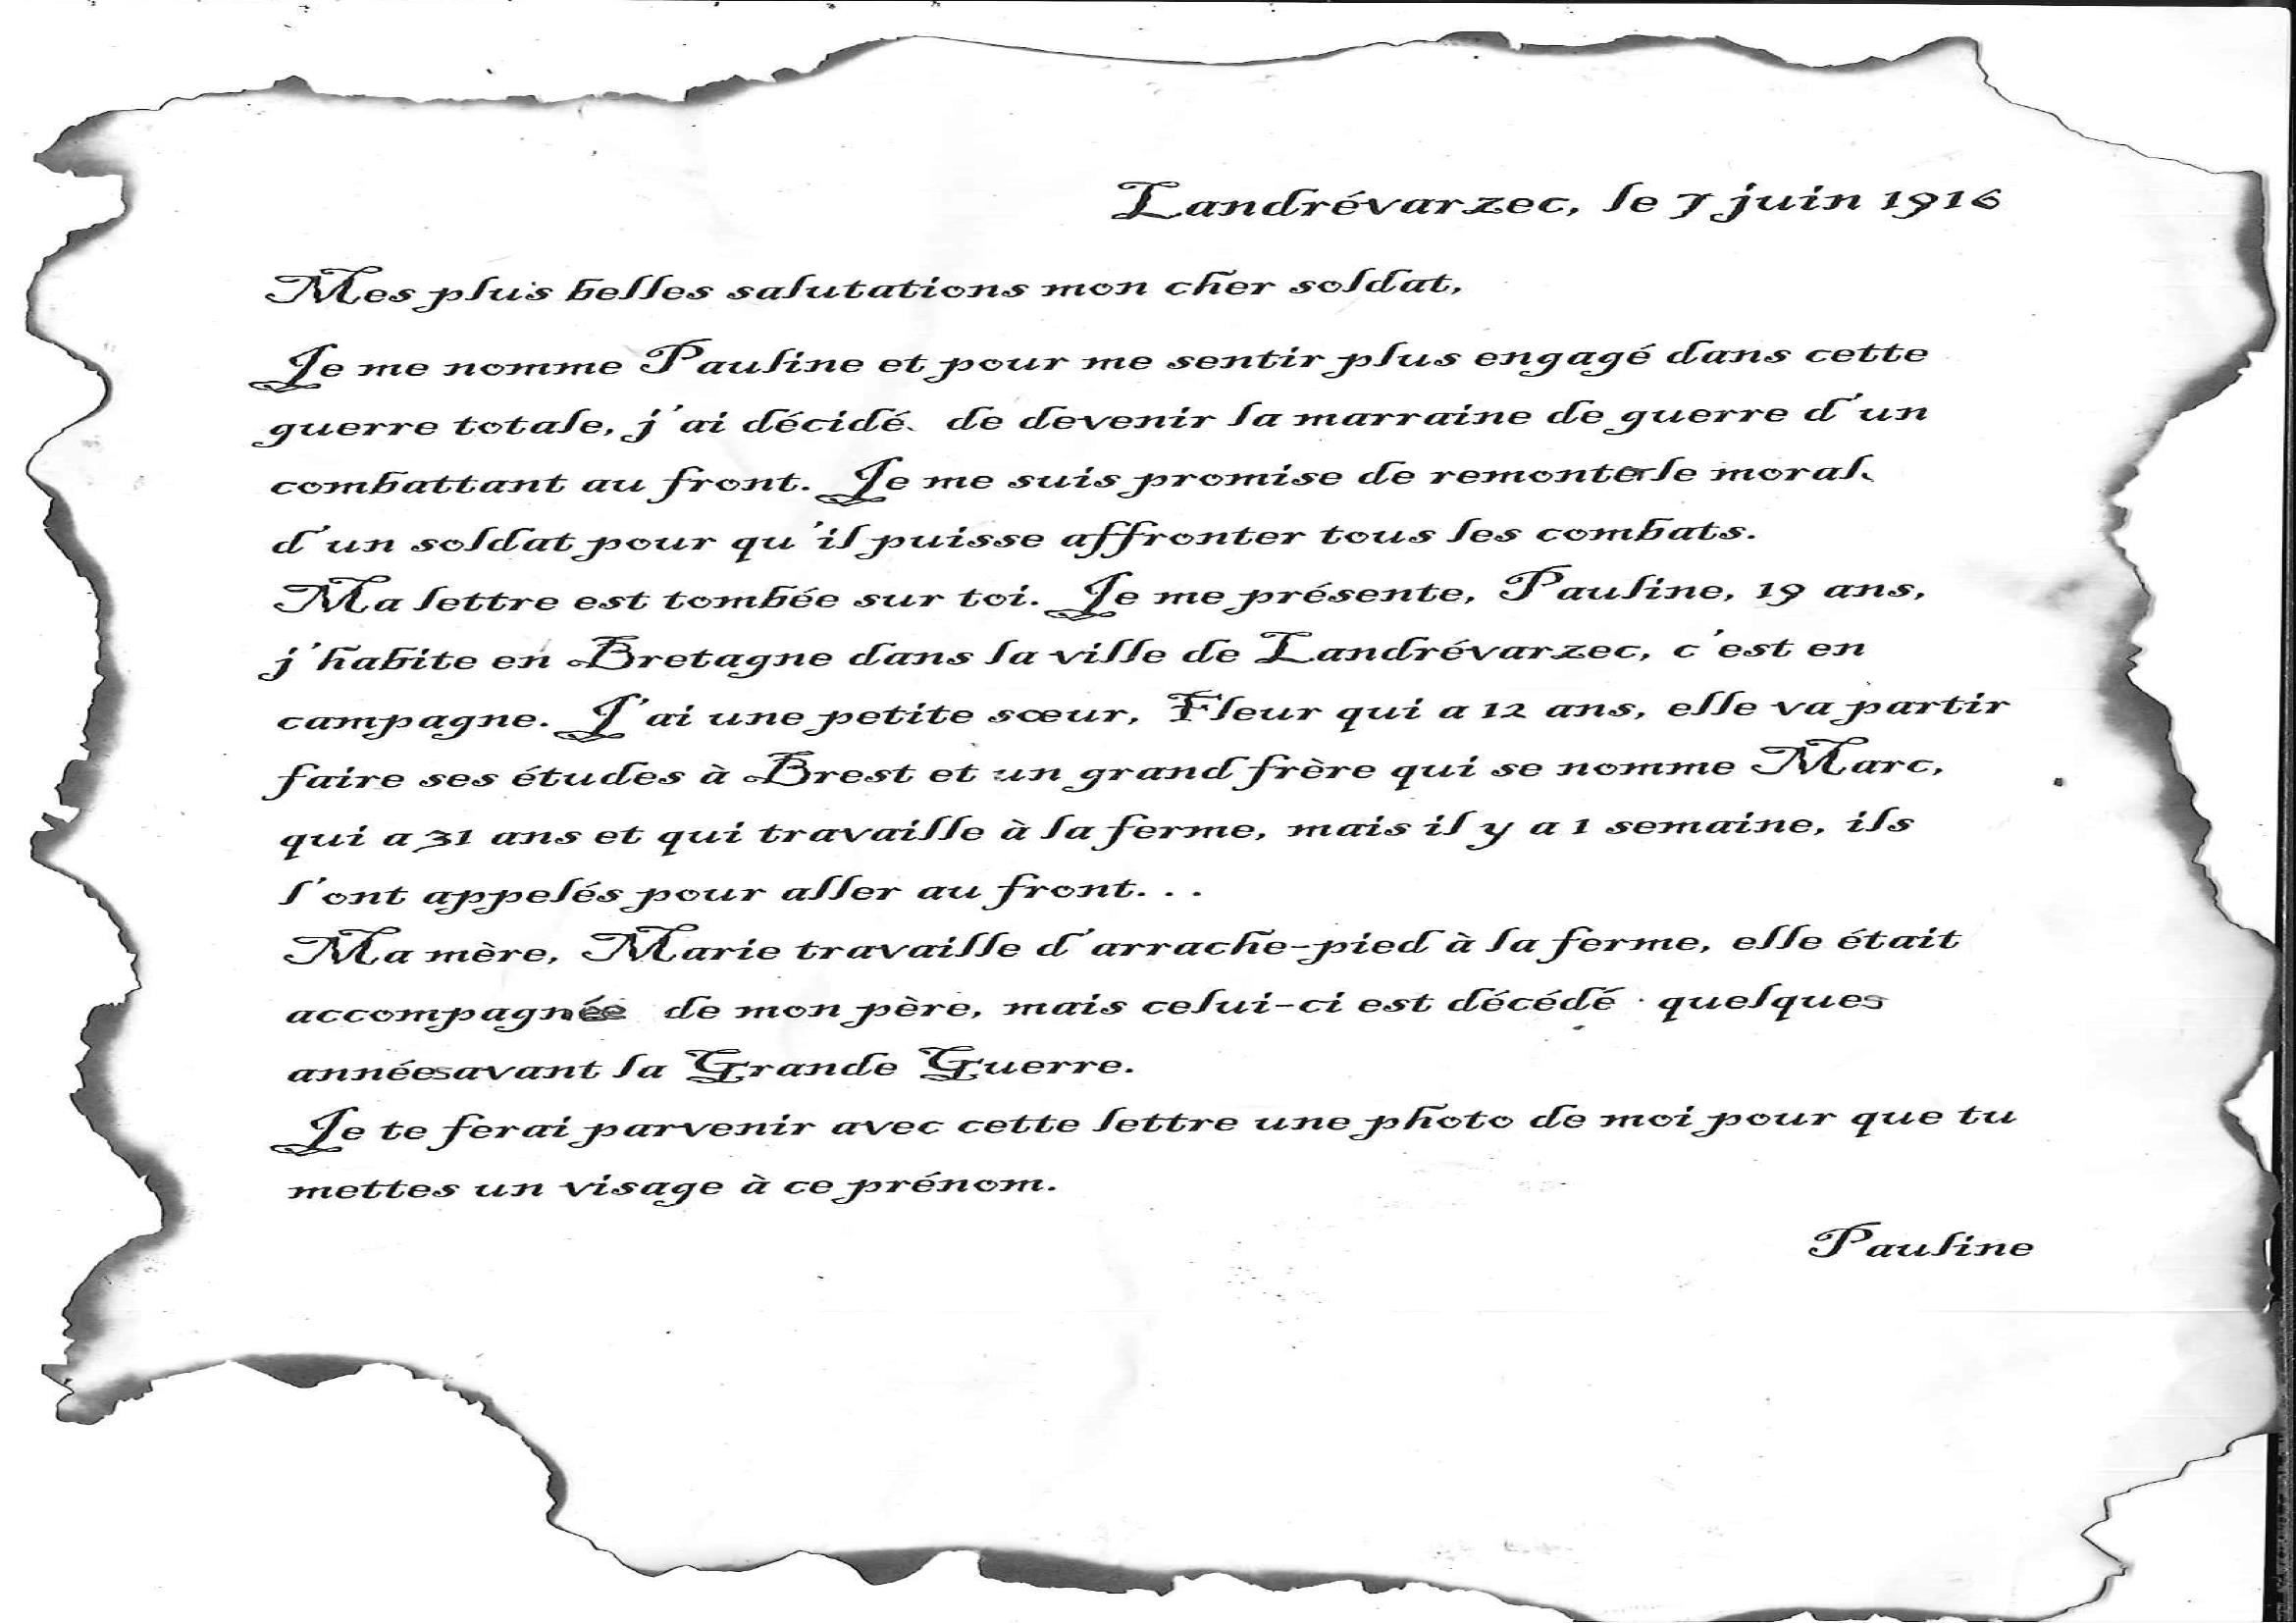 Landrévarzec, le 7 juin 1916
Mes plus belles salutations mon cher soldat,
Je me nomme Pauline et pour me sentir plus engagé dans cette
guerre totale, j'ai décidé de devenir la marraine de guerre d'un
combattant au front. Je me suis promise de remonter le moral
d'un soldat pour qu'il puisse affronter tous les combats.
Ma lettre est tombée sur toi. Je me présente, Pauline, 19 ans,
j'habite en Bretagne dans la ville de Landrévarzec, c'est en
campagne. J'ai une petite sœur, Fleur qui a 12 ans, elle va partir
faire ses études à Brest et un grand frère qui se nomme Marc,
qui a 31 ans et qui travaille à la ferme, mais il y a 1 semaine, ils
l'ont appelés pour aller au front...
Ma mère, Marie travaille d'arrache-pied à la ferme, elle était
accompagnée de mon père, mais celui-ci est décédé quelques
années avant la Grande Guerre.
Je te ferai parvenir avec cette lettre une photo de moi pour que tu
mettes un visage à ce prénom.
Pauline